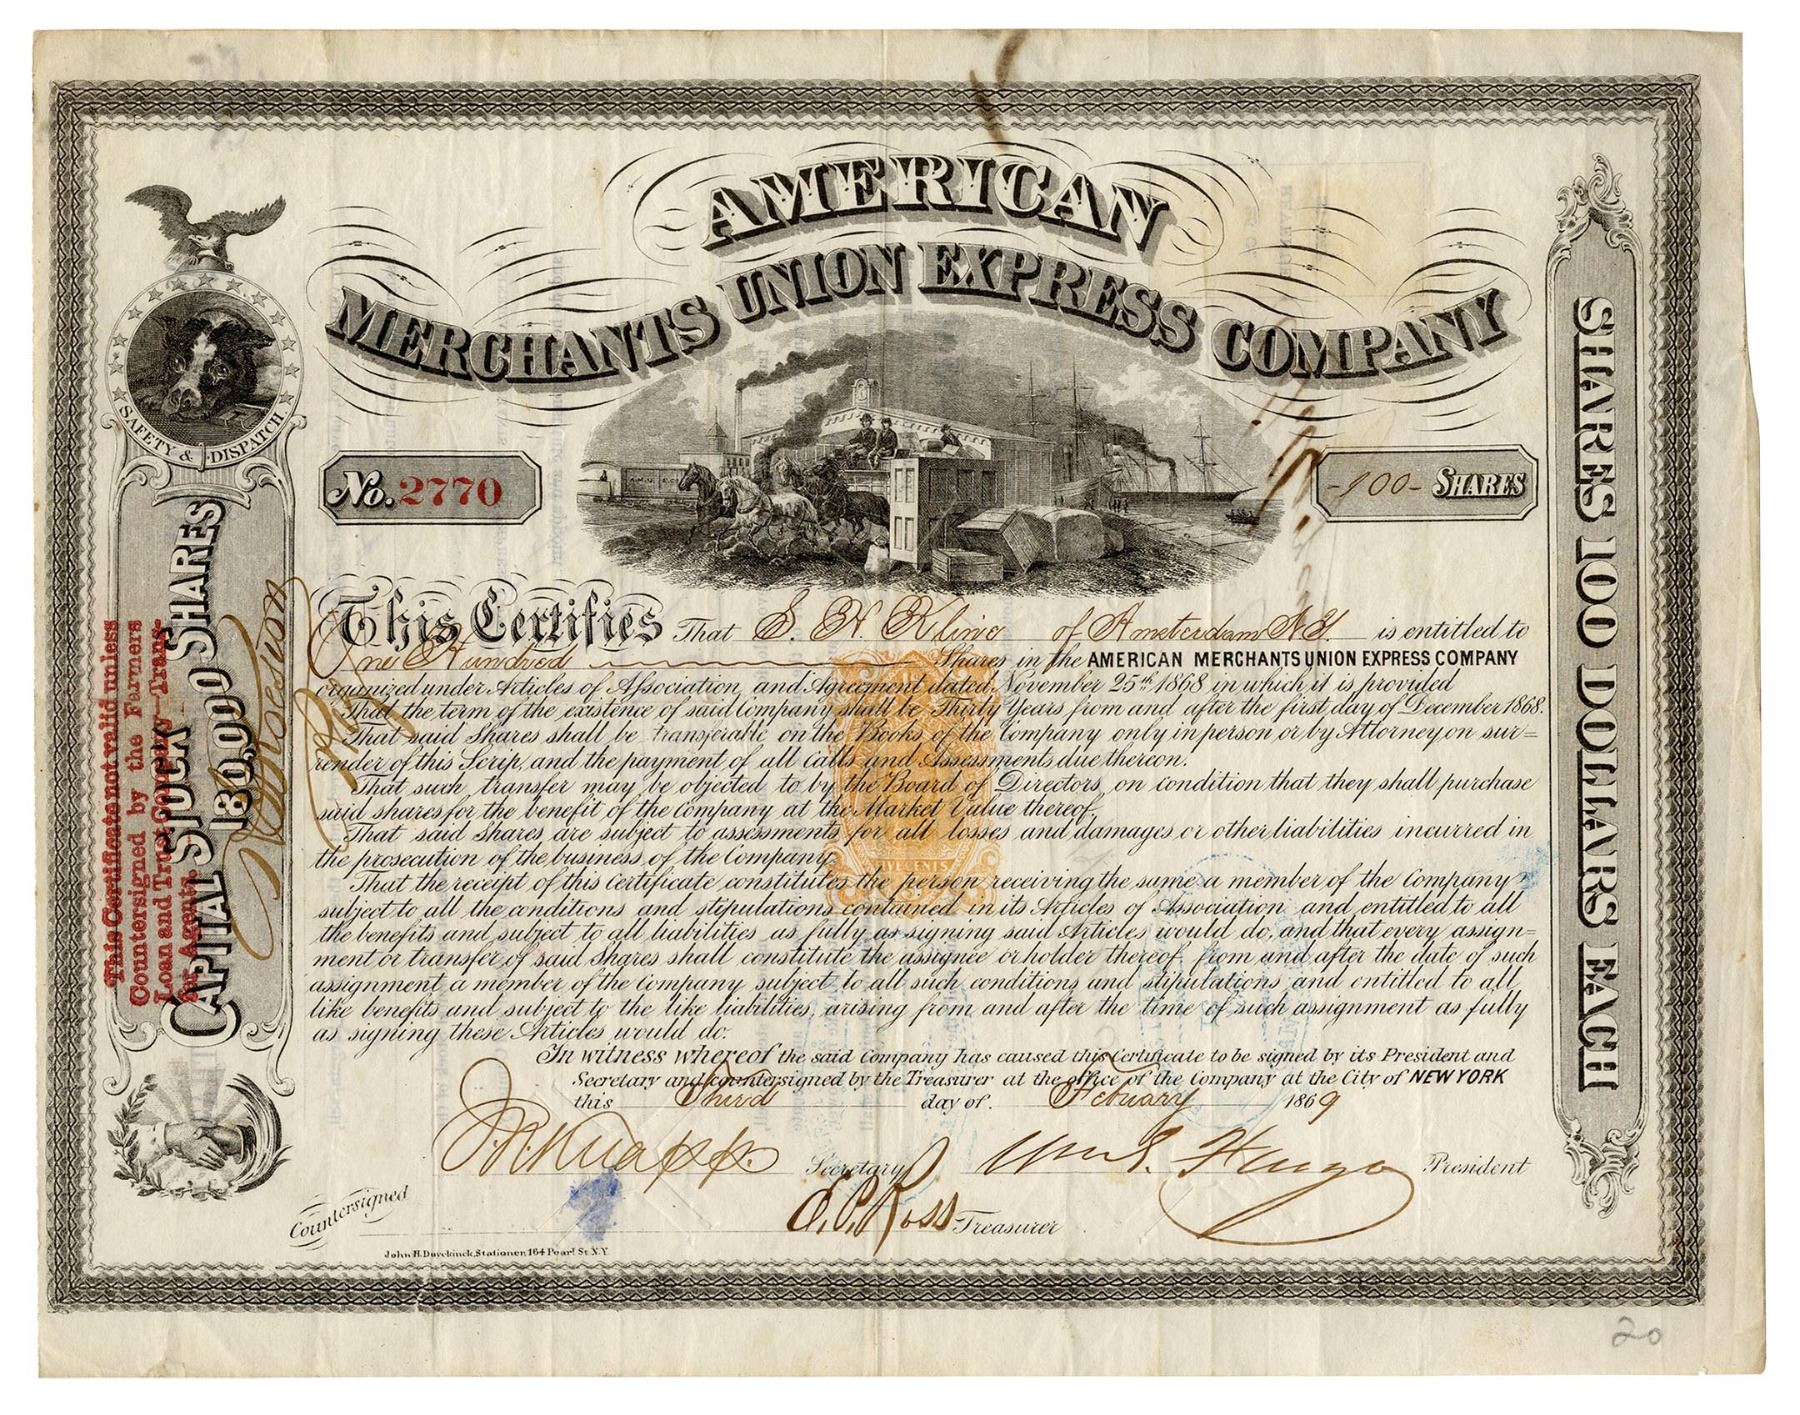 AMERICAN
MERCHANTS UNION EXPRESS COMPANY
SAFETY & DISPATCH.
No. 2770
-100- SHARES
This Certifies That S. H. Kline of Amsterdam N.Y. is entitled to
One Hundred Shares in the AMERICAN MERCHANTS UNION EXPRESS COMPANY
organized under Articles of Association, and Agreement dated November 25th 1868 in which it is provided
That the term of the existence of said Company shall be Thirty Years from and after the first day of December 1868.
That said Shares shall be transferable on the Books of the Company only in person or by Attorney on sur=
render of this Scrip, and the payment of all Calls and Assessments due thereon.
That such transfer may be objected to by the Board of Directors, on condition that they shall purchase
said shares for the benefit of the Company at the Market Value thereof.
That said Shares are subject to assessments for all losses and damages or other liabilities incurred in
the prosecution of the business of the Company.
That the receipt of this Certificate constitutes the person receiving the same a member of the Company
subject to all the conditions and stipulations contained in its Articles of Association and entitled to all
the benefits and subject to all liabilities as fully as signing said Articles would do, and that every assign=
ment or transfer of said Shares shall constitute the assignee or holder thereof from and after the date of such
assignment a member of the Company subject to all such conditions and stipulations and entitled to all
like benefits and subject to the like liabilities, arising from and after the time of such assignment as fully
as signing these Articles would do.
In witness whereof the said Company has caused this Certificate to be signed by its President and
Secretary and countersigned by the Treasurer at the office of the Company at the City of NEW YORK
this Third day of Febuary 1869
J. N. Knapp. Secretary Wm G. Fargo President
Countersigned E. P. Ross Treasurer
John H. Duyckinck, Stationer, 164 Pearl St. N.Y.
This Certificate not valid unless
Countersigned by the Farmers
Loan and Trust Company—Trans-
fer Agents.
CAPITAL STOCK 180,000 SHARES
SHARES 100 DOLLARS EACH
FIVE CENTS
20